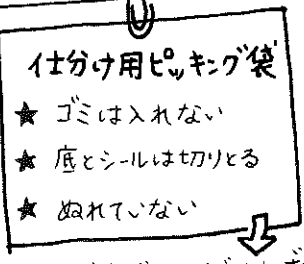 仕分け用ピッキング袋
★ ゴミは入れない
★ 底とシールは切りとる
★ ぬれていない